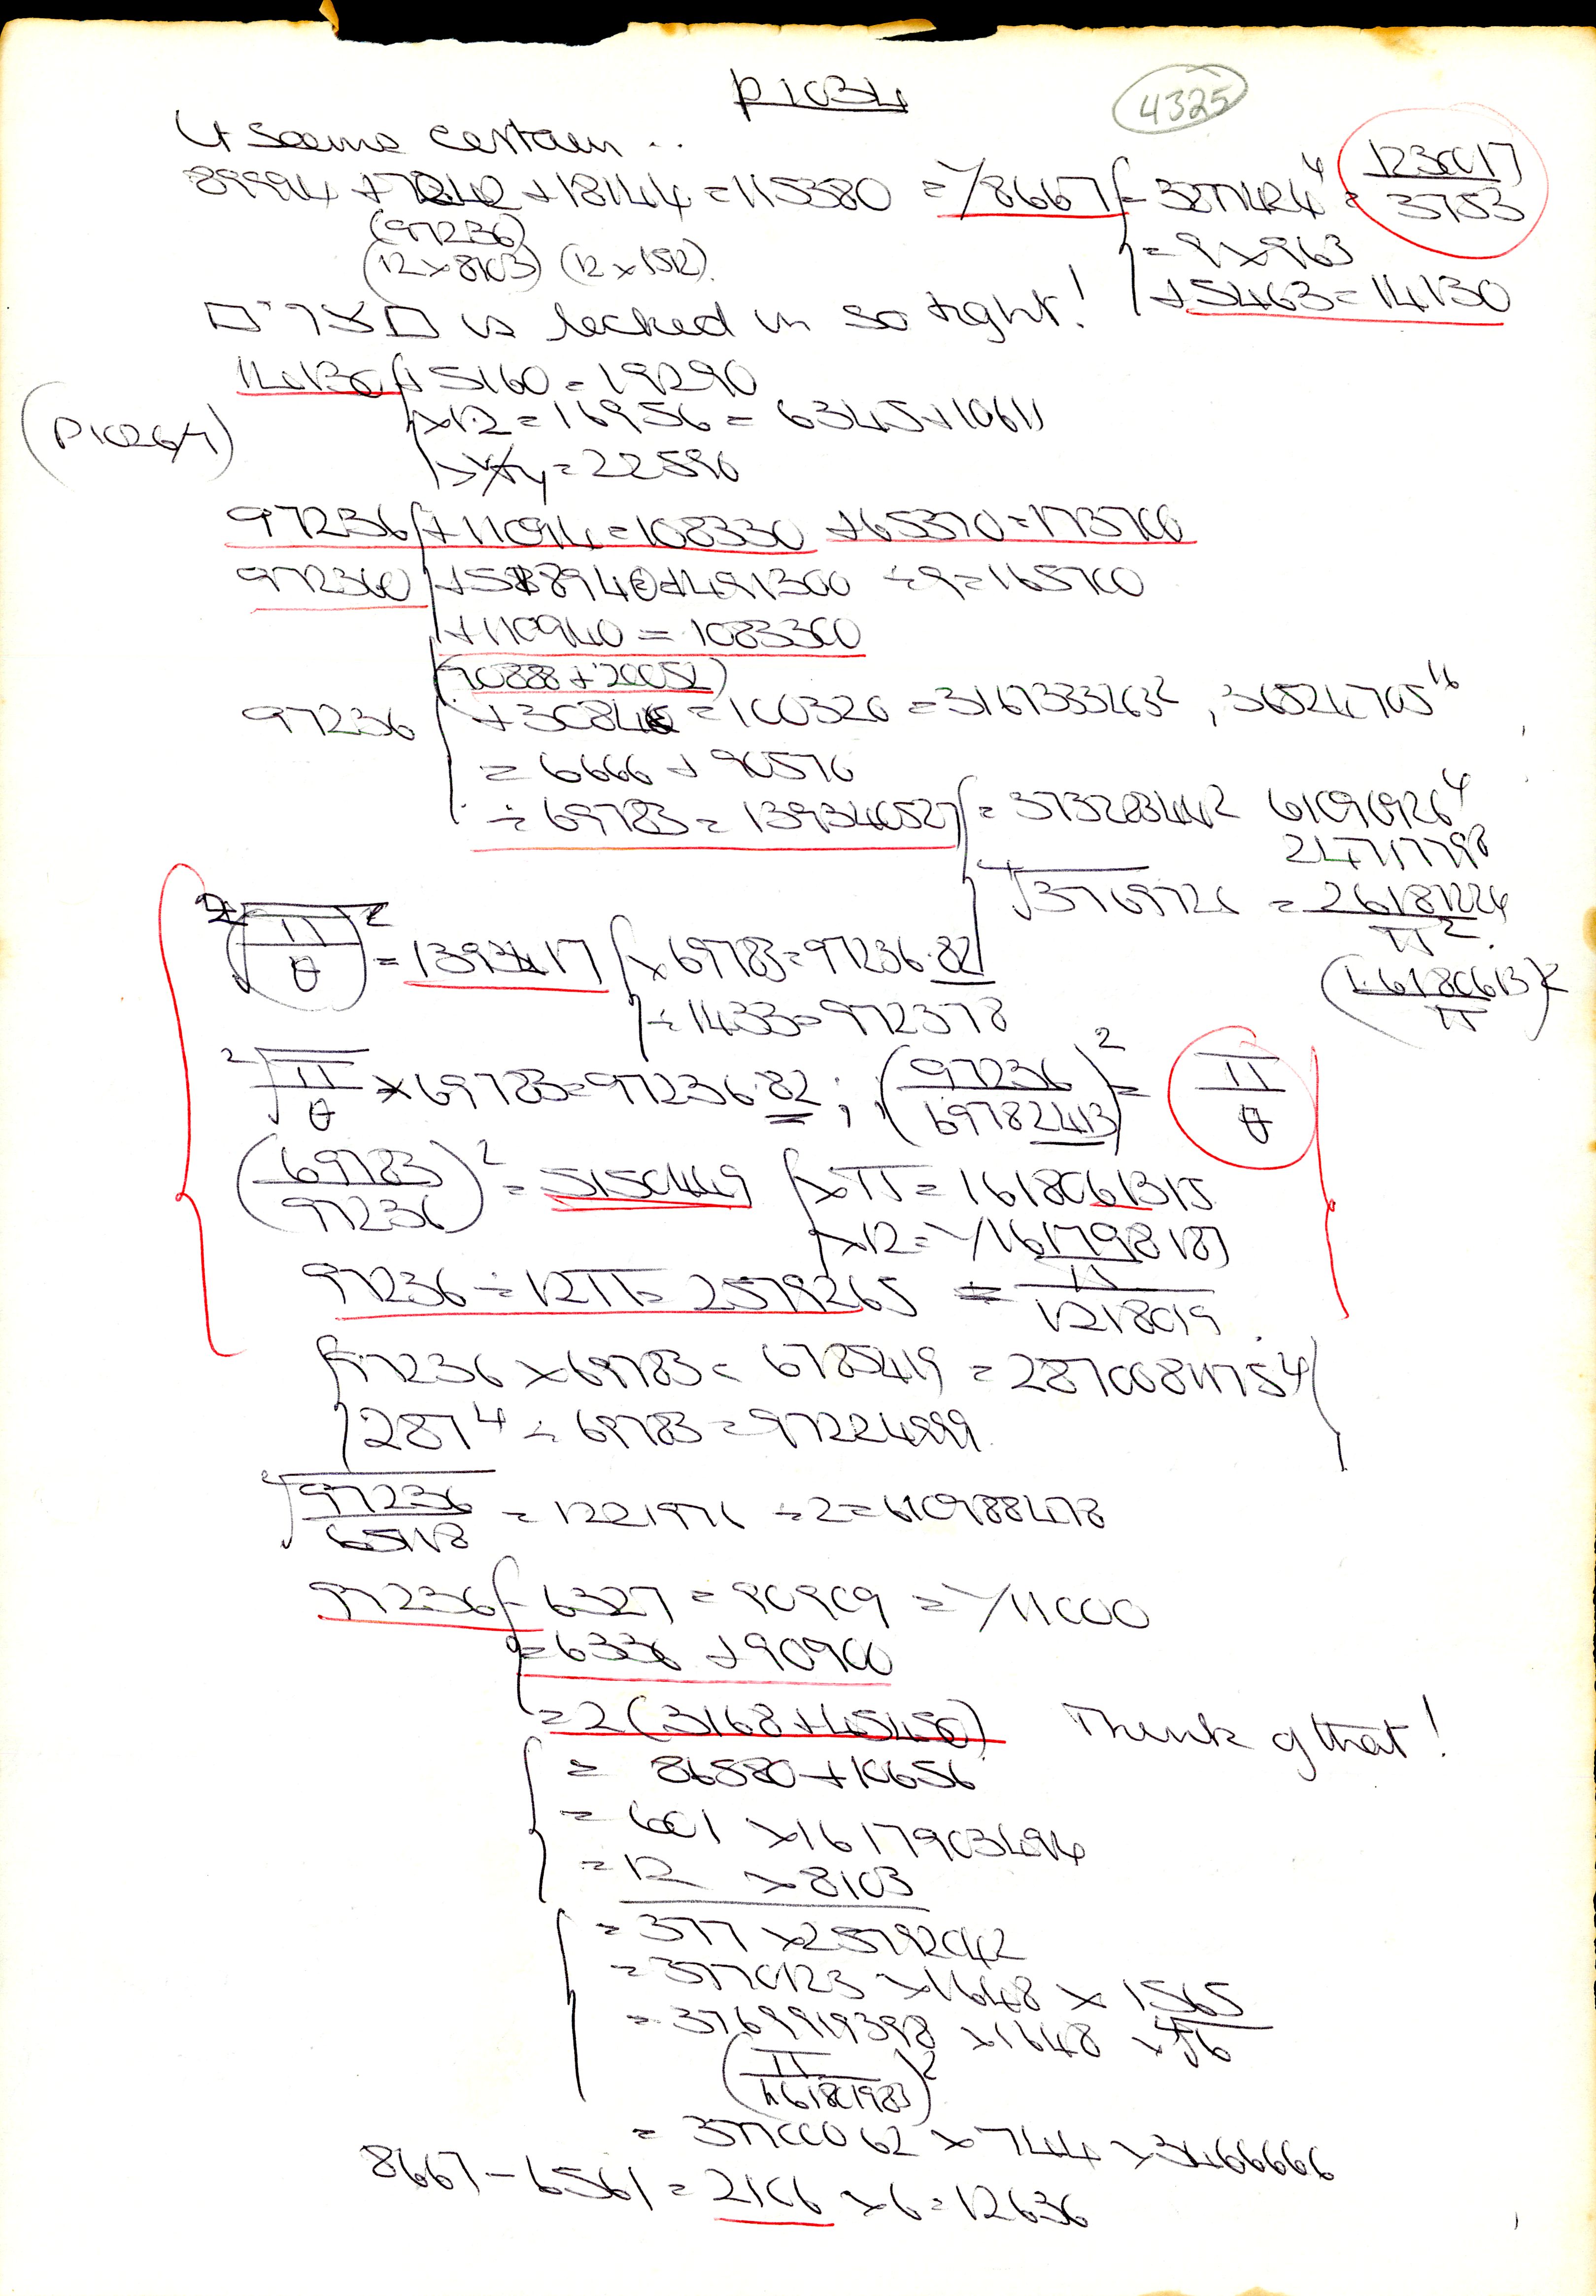 P1034
4325
It seems certain ..
89994 + 7242 + 18144 = 115380 = 1/8667 - 3277424⁴ = 1230017/3753
(97236)
(12 x 8103) (12 x 1512).
= 9 x 963
+ 5463 = 14130
is locked in so tight!
14130 + 5160 = 19290
(P1026/7)
x 12 = 16956 = 6345 + 10611
= 22590
97236 + 11094 = 108330 + 65370 = 173700
972360 + 518940 = 1491300 ÷ 9 = 165700
+ 110940 = 1083300
(10888 + 20052)
97236 + 30840 = 100320 = 316733363², 36524705
= 6666 + 90570
÷ 69783 = 139340527 = 373283442 61090926⁴
247177798
⁴√3769726 = 26181224/π²
²√(π/θ)² = 1393417 x 69783 = 97236.82
(1.6180613/π)²
÷ 1433 = 972378
²√π/θ x 69783 = 97236.82 ; (97236/69782413)² = π/θ
(69783/97236)² = 5150449 x π = 1618061315
x 12 = 1/161798187
97236 ÷ 12π = 2579265 = π/1218019
97236 x 69783 = 6785419 = 2870081175⁴
287⁴ ÷ 69783 = 97224999
√97236/65118 = 1221976 ÷ 2 = 610988478
97236 - 6327 = 90909 = 1/11000
= 6336 + 90900
= 2(3168 + 45450) Think of that!
= 86580 + 10656
= 601 x 1617903494
= 12 x 8103
= 377 x 25792042
= 3770123 x 1648 x 1565
= 3769919398 x 1648 x ⁴√6
(π/1.61801983)²
= 37700062 x 744 x 3466666
8667 - 6561 = 2106 x 6 = 12636